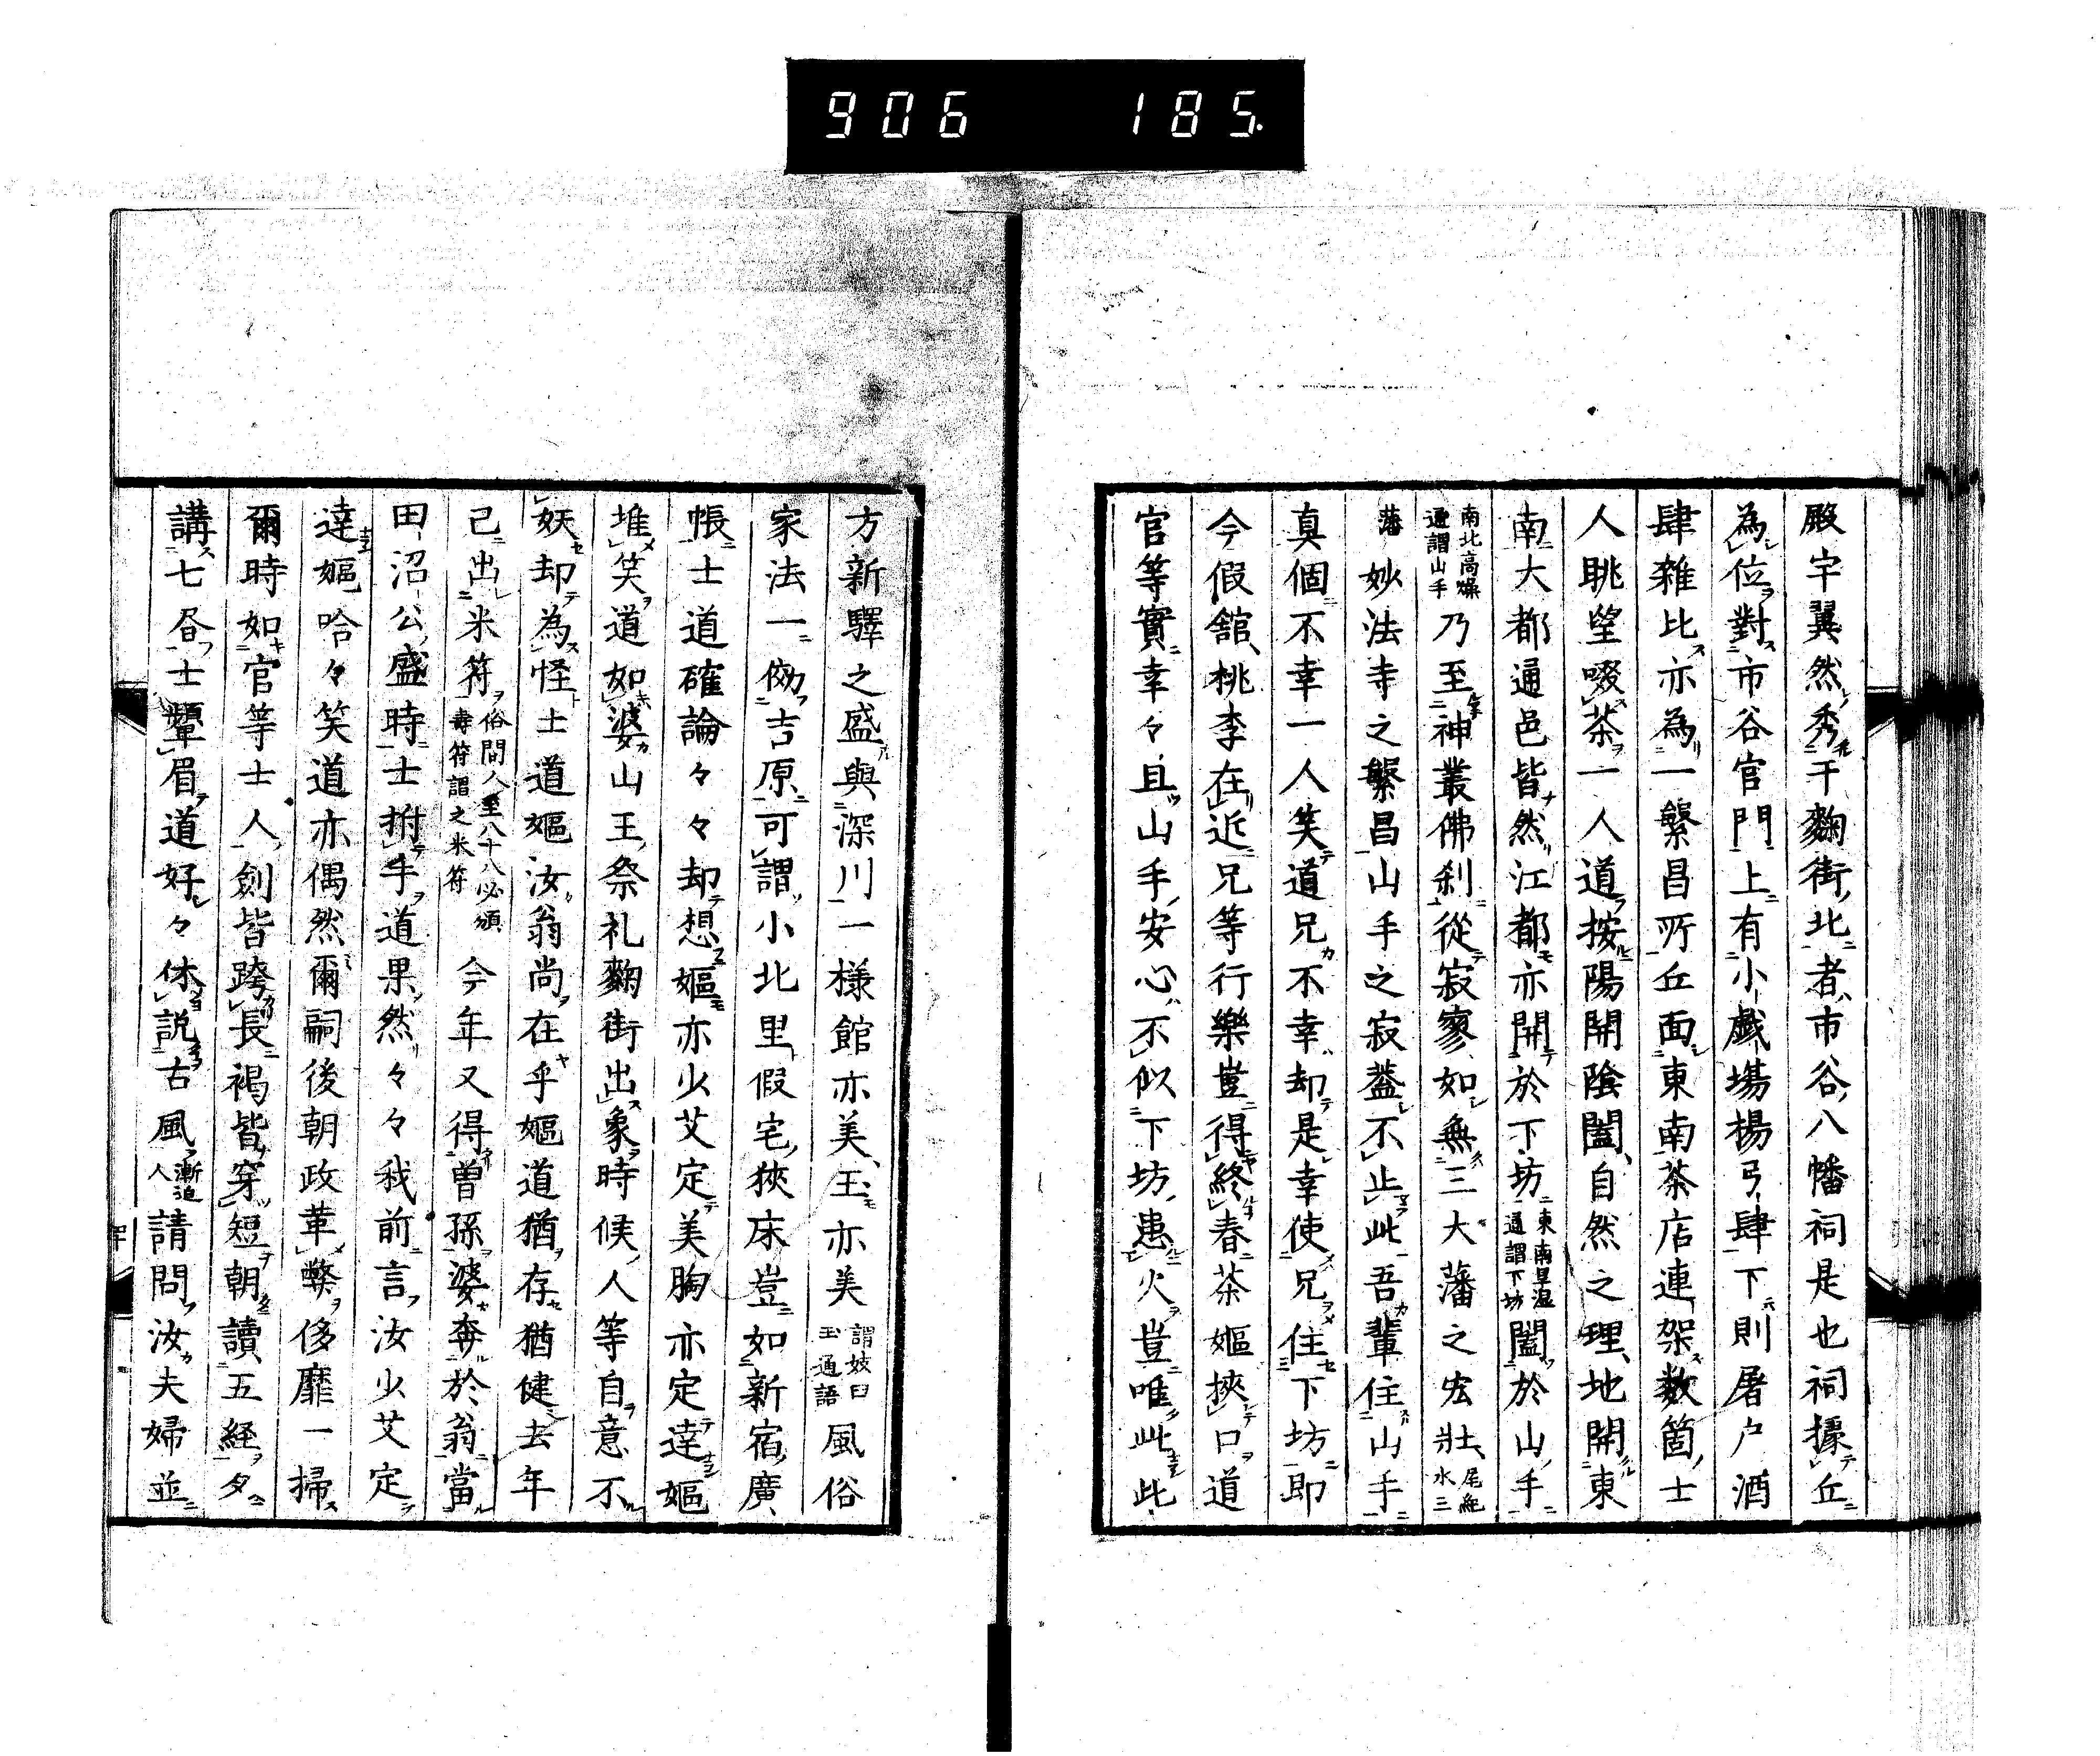 906 185.
殿宇翼然秀于麹街北者市谷八幡祠是也祠據丘
為位對市谷官門上有小戯塲楊弓肆下則屠戸酒
肆雜比亦為一繁昌所丘面東南茶店連架数箇士
人眺望啜茶一人道按陽開陰闔自然之理地開東
南大都通邑皆然江都亦開於下坊東南卑湿通謂下坊闔於山手
南北高燥通謂山手乃至神叢佛刹從寂寥如無三大藩之宏壯尾紀水三
藩妙法寺之繁昌山手之寂蓋不止此吾輩住山手
真個不幸一人笑道兄不幸却是幸使兄住下坊即
今假舘桃李在近兄等行樂豈得終春茶嫗挾口道
官等實幸々且山手安心不似下坊患火豈唯此此
方新驛之盛與深川一様館亦美玉亦美謂妓曰玉通語風俗
家法一俲吉原可謂小北里假宅狹床豈如新宿廣
帳士道確論々々却想嫗亦少艾定美胸亦定達嫗
堆笑道如婆山王祭礼麹街出象時候人等自意不
妖却為怪士道嫗汝翁尚在乎嫗道猶存猶健去年
己出米符俗間人至八十八必頒壽符謂之米符今年又得曽孫婆奔於翁當
田沼公盛時士拊手道果然々々我前言汝少艾定
達嫗哈々笑道亦偶然爾嗣後朝政革弊侈靡一掃
爾時如官等士人劍皆跨長褐皆穿短朝讀五経夕
講七昏士顰眉道好々休説古風漸迫人請問汝夫婦並